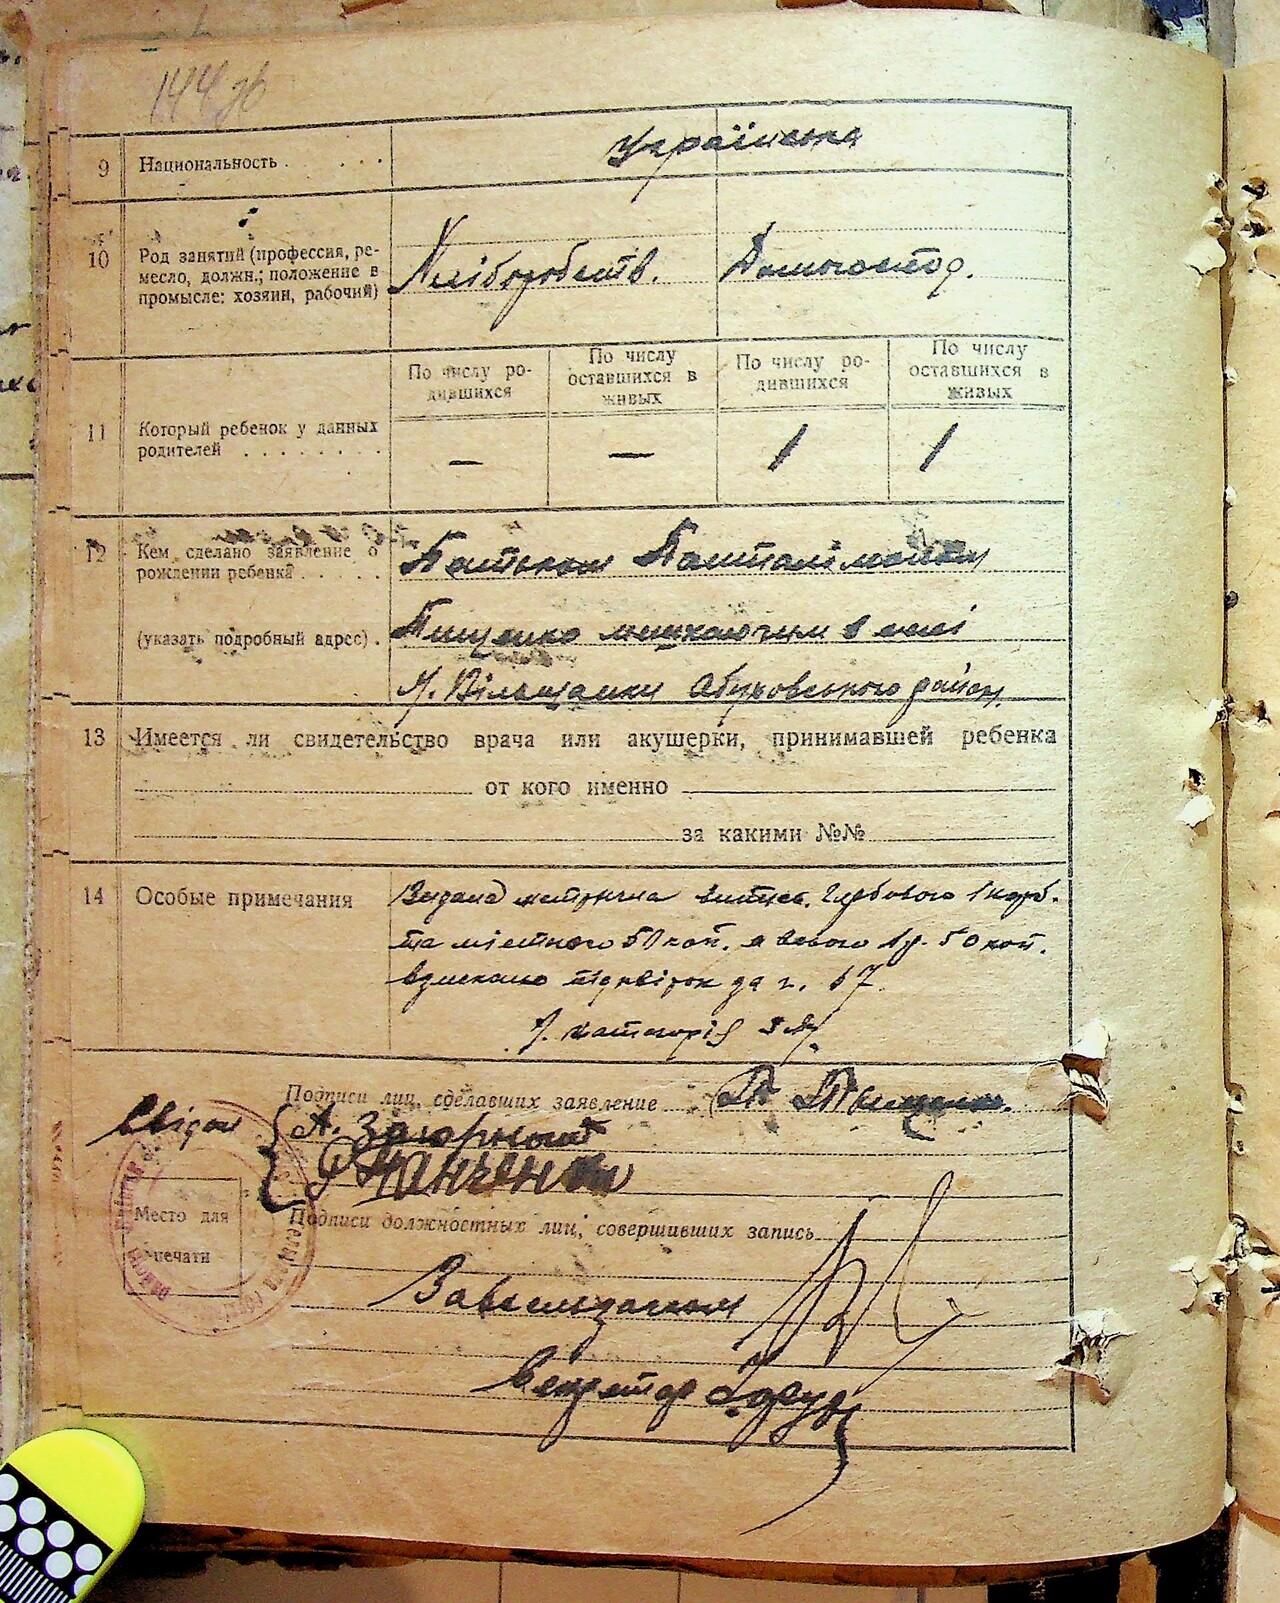 144 зв
9 Национальность . . . . Українська
10 Род занятий (профессия, ре-
месло, должн.; положение в
промысле: хозяин, рабочий)
Хліборобств. Домогоспод.
По числу ро-
дившихся
По числу
оставшихся в
живых
По числу ро-
дившихся
По числу
оставшихся в
живых
11 Который ребенок у данных
родителей . . . . . . . .
— — 1 1
12 Кем сделано заявление о
рождении ребенка . . . . .
Батьком
(указать подробный адрес) .
Пищенко мешкаючим в селі
М. Вільшанки району
13 Имеется ли свидетельство врача или акушерки, принимавшей ребенка
от кого именно
за какими №№
14 Особые примечания
Видана метрична витяг. Гербового 1 карб.
та місцевого 50 коп. а всього 1 р. 50 коп.
взыскано
Подписи лиц, сделавших заявление П. Пищенко.
Свідки А. Загорный
Панченко
Место для
печати
Подписи должностных лиц, совершивших запись
Завідуючий
Секретар